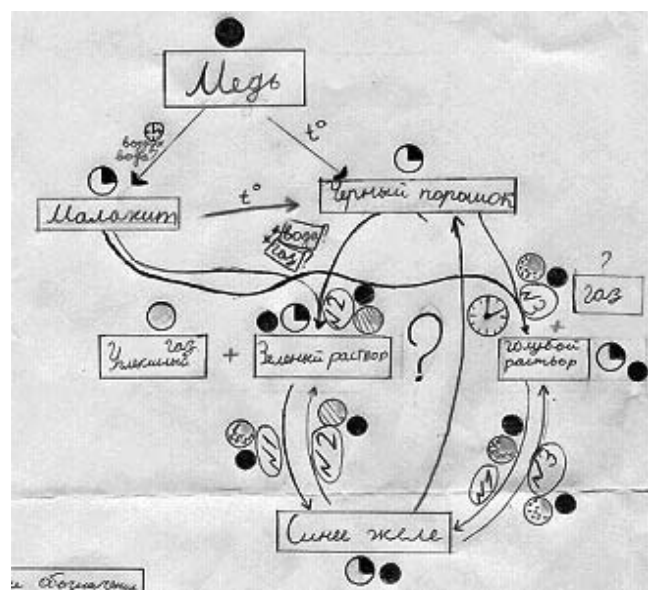 Медь
t°
вода?
Малахит
t°
Черный порошок
вода?
газ
N2
N3
?
газ
Углекислый газ
+
Зеленый раствор
?
+
голубой
раствор
N1
N2
N1
N3
Синее желе
обозначения